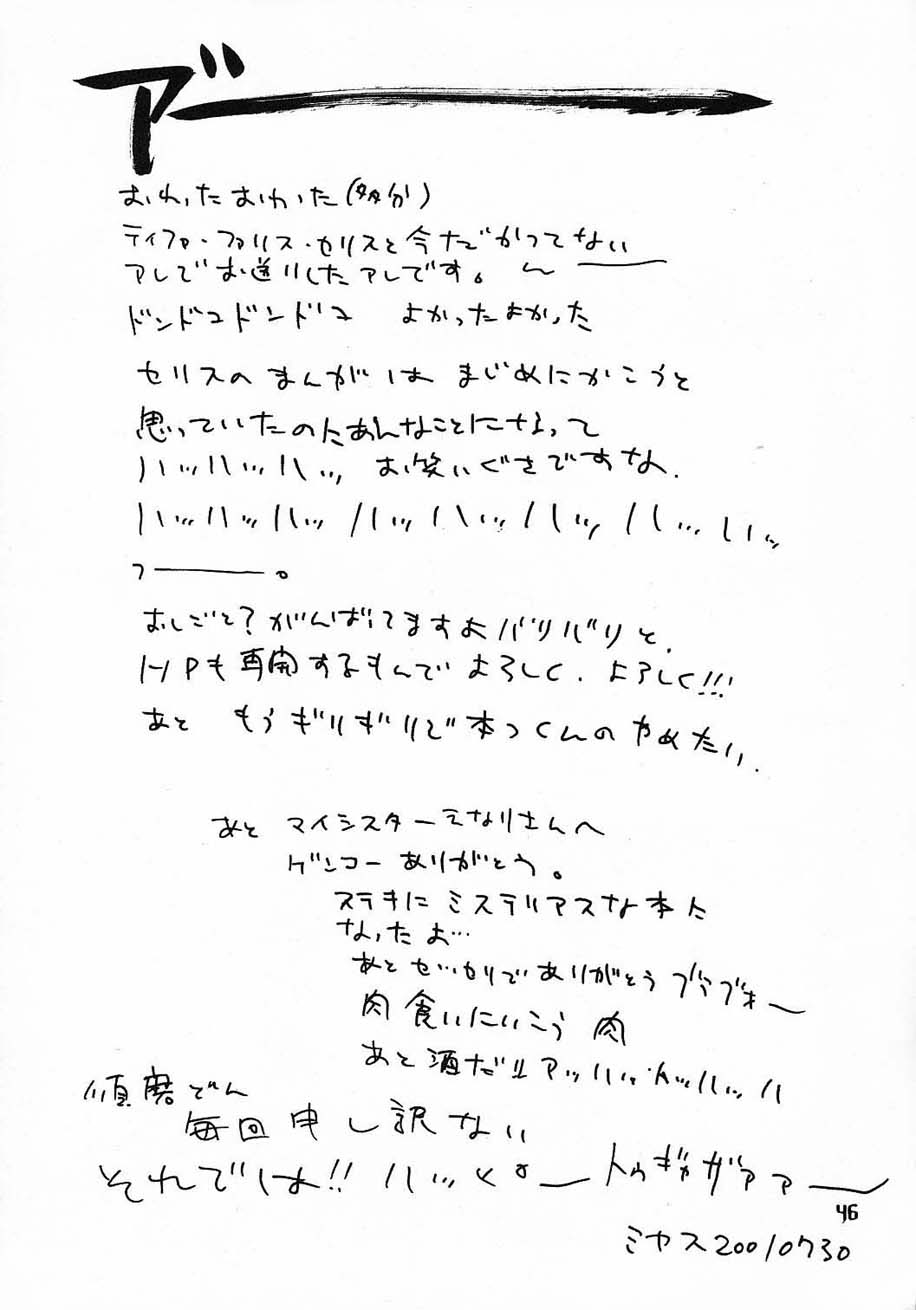 ア゛ー
おわったおわった(多分)
ティファ・ファリス・セリスと今だかつてない
アレでお送りしたアレです。〜
ドンドコドンドコ よかったよかった
セリスのまんがは まじめにかこうと
思っていたのにあんなことになって
ハッハッハッ お笑いぐさですな.
ハッハッハッハッハッハッハッハッ
フ――。
おしごと?がんばってますよバリバリと.
HPも再開するもんで よろしく.よろしく!!!
あと もうギリギリで本つくんのやめたい.
あと マイシスターえなりさんへ
ゲンコーありがとう。
ステキにミステリアスな本に
なったよ…
あとせっかりでありがとう ブラブォー
肉食いにいこう 肉
あと酒だ!! アッハッハッハッハ
須磨どん
毎回申し訳ない
それでは!! ハッ
トゥギャザァァー
46
ミヤス20010730